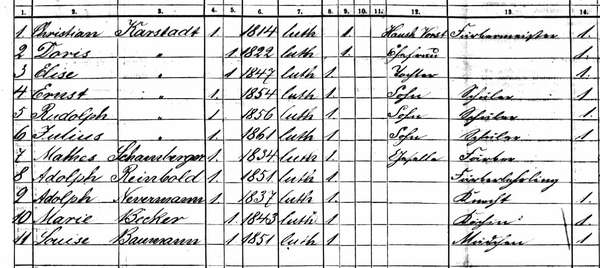 1. 2. 3. 4. 5. 6. 7. 8. 9. 10. 11. 12. 13. 14.
1 Christian Karstadt 1. 1814 luth 1. Haush. Vorst Färbermeister 1.
2 Doris " 1 1822 luth 1. Ehefrau 1.
3 Elise " 1 1847 luth 1. Tochter 1.
4 Ernst " 1. 1854 luth 1. Sohn Schüler 1.
5 Rudolph " 1 1856 luth 1. Sohn Schüler 1.
6 Julius " 1. 1861 luth 1. Sohn Schüler 1.
7 Mathes Schamberger 1. 1834 luth 1. Geselle Färber
8 Adolph Reinbold 1. 1851 luth 1. Färberlehrling
9 Adolph Nevermann 1. 1837 luth 1. Knecht 1.
10 Marie Becker 1 1843 luth 1. Köchin 1.
11 Louise Baumann 1 1851 luth 1. Mädchen 1.